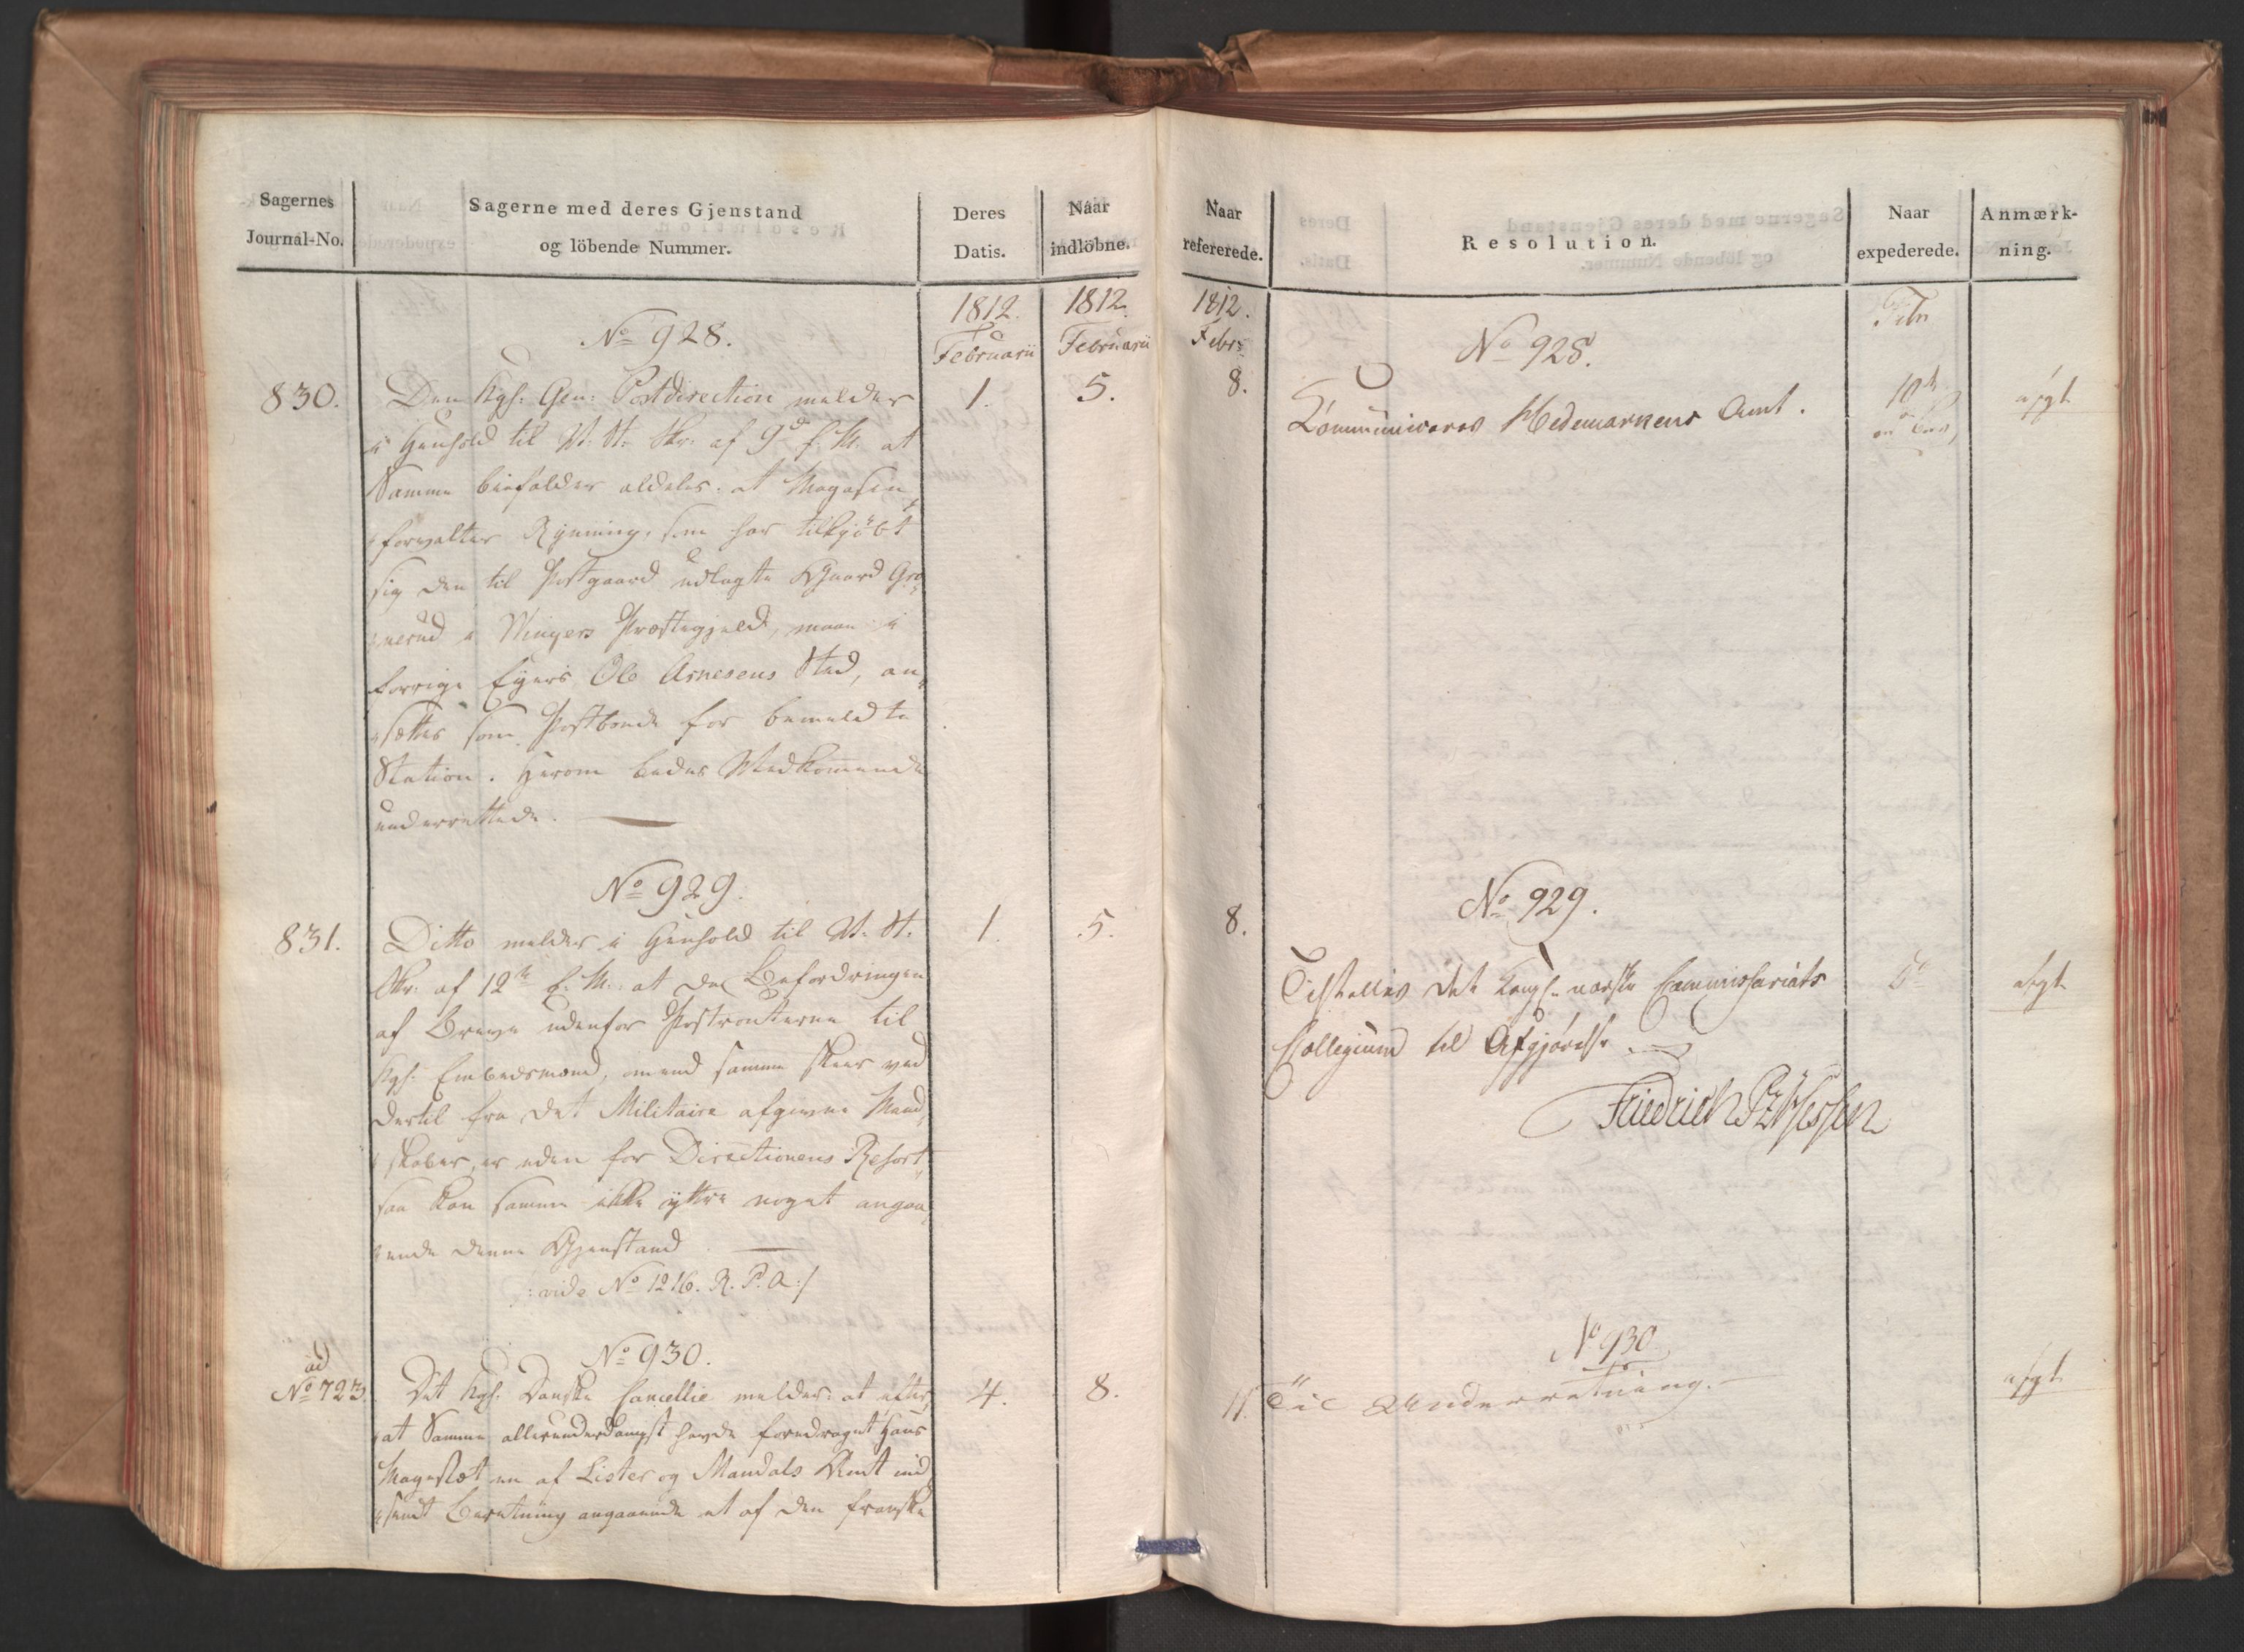 Sagernes
Journal-No.
Sagerne med deres Gjenstand
og löbende Nummer.
Deres
Datis.
Naar
indlöbne.
1812.
Februarii
1812.
Februarii
No 928.
830.
Den Kgl. Gen: Postdirection melder
1.
5.
i Henhold til V. St. Skr. af 9de f. M. at
Samme biefalder aldeles: at Magasin
forvalter Rynning, som har tilkjöbt
sig den til Postgaard udlagte Gaard Gro
nerud i Wingers Præstegjeld, maae i
forrige Eyers Ole Arnesens Sted, an
sættes som Postbonde for bemeldte
Station. Herom bedes Vedkommende
underrettede.
No 929.
831.
Ditto melder i Henhold til V. St.
1.
5.
Skr. af 12te f. M. at da Befordringen
af Breve udenfor Postrouterne til
Kgl. Embedsmænd, omend samme skeer ved
dertil fra det Militaire afgivne Mand
skaber, er uden for Directionens Resort
saa kan samme ikke yttre noget angaa
ende denne Gjenstand
/: vide No 1216. R. P. A:/
No 930.
ad
No 723.
Det Kgl. Danske Cancellie melder: at efter
4.
8.
at Samme allerunderdanigst havde foredraget Hans
Majestæt en af Lister og Mandals Amt ind
sendt Beretning angaaende et af den franske
Naar
refererede.
Resolution.
Naar
expederede.
Anmærk-
ning.
1812.
Febr:
Febr
No 928.
8.
Communiceres Hedemarkens Amt.
10de
afgt.
No 929.
8.
Tilstilles det Kongl. norske Commissariats
Do
afgt.
Collegium til Afgjörelse
Friedrich PzHessen
No 930
11.
Til Underretning.
afgt.